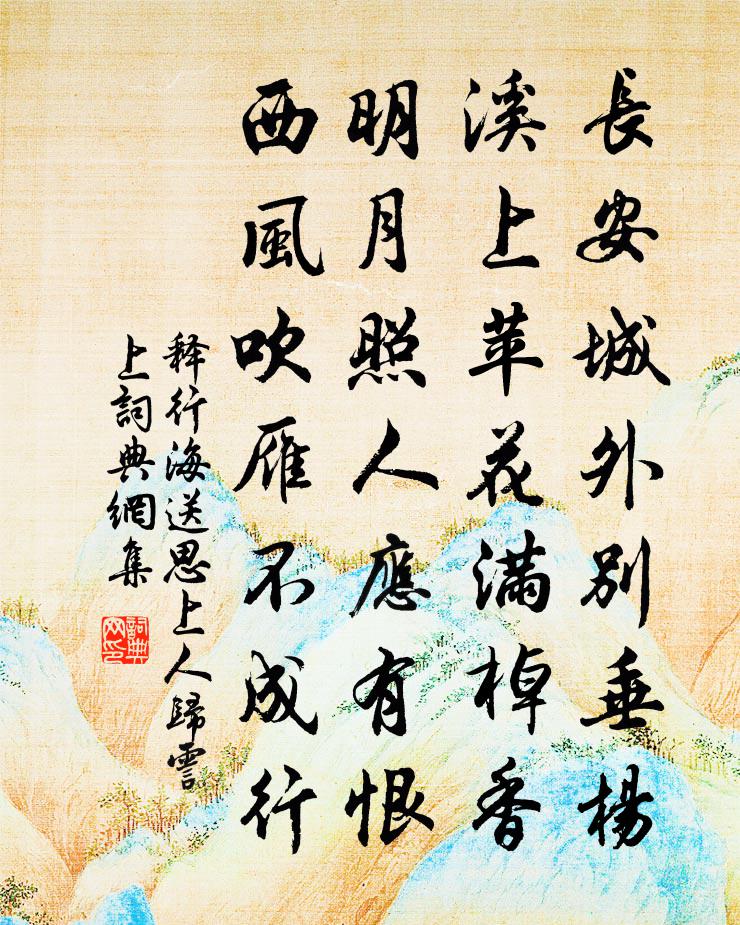 長安城外別垂楊
溪上苹花滿棹香
明月照人應有恨
西風吹雁不成行
释行海送思上人歸霅
上詞典網集
詞典網印